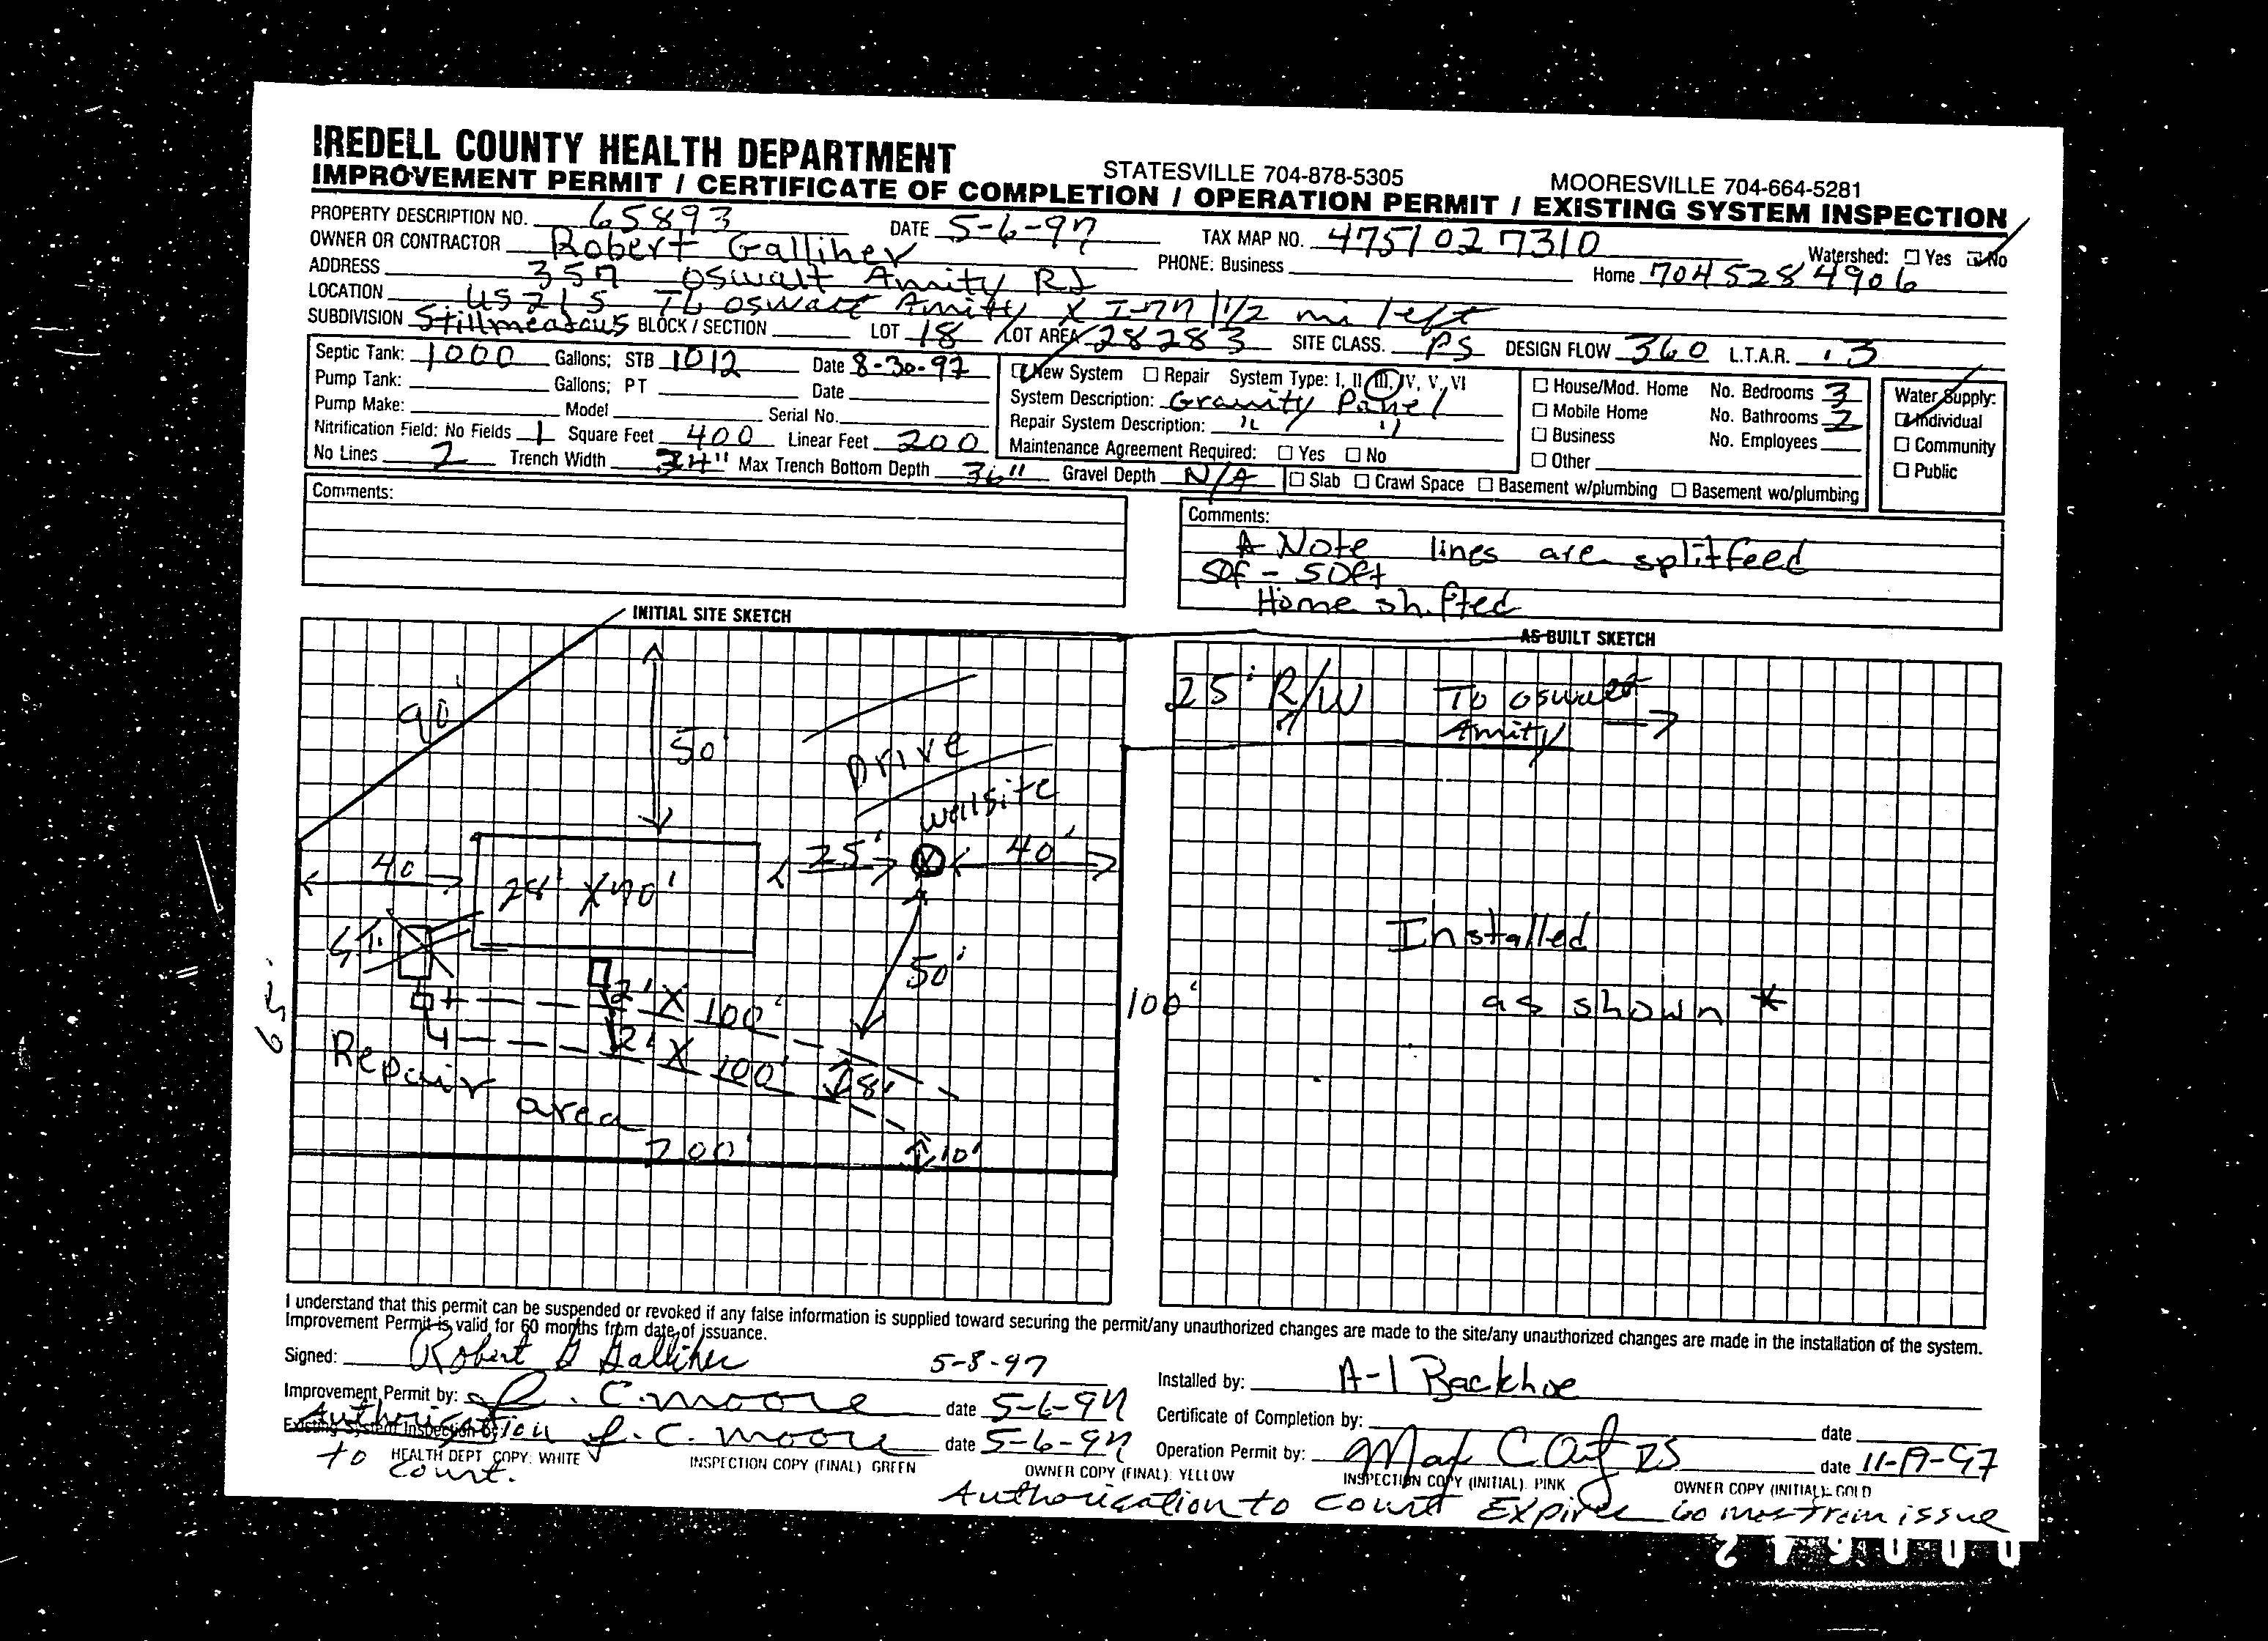 IREDELL COUNTY HEALTH DEPARTMENT STATESVILLE 704-878-5305 MOORESVILLE 704-664-5281
IMPROVEMENT PERMIT / CERTIFICATE OF COMPLETION / OPERATION PERMIT / EXISTING SYSTEM INSPECTION
PROPERTY DESCRIPTION NO. 65893 DATE 5-6-97 TAX MAP NO. 4751 02 7310 Watershed: Yes No
OWNER OR CONTRACTOR Robert Galliher PHONE: Business Home 704 528 4906
ADDRESS 357 Oswalt Amity Rd
LOCATION US 21 S To Oswalt Amity X I-77 1 1/2 mi left
SUBDIVISION Stillmeadows BLOCK / SECTION LOT 18 LOT AREA 28283 SITE CLASS. PS DESIGN FLOW 360 L.T.A.R. .3
Septic Tank: 1000 Gallons; STB 1012 Date 8-30-97 New System Repair System Type: I, II, III, IV, V, VI House/Mod. Home No. Bedrooms 3 Water Supply:
Pump Tank: Gallons; PT Date System Description: Gravity Panel Mobile Home No. Bathrooms 2 Individual
Pump Make: Model Serial No. Repair System Description: " " Business No. Employees Community
Nitrification Field: No Fields 1 Square Feet 400 Linear Feet 200 Maintenance Agreement Required: Yes No Other Public
No Lines 2 Trench Width 24" Max Trench Bottom Depth 36" Gravel Depth N/A Slab Crawl Space Basement w/plumbing Basement wo/plumbing
Comments:
Comments:
Note lines are splitfeed
50f - 50ft
Home shifted
INITIAL SITE SKETCH AS BUILT SKETCH
25' R/W To Oswalt
Amity
90'
50'
Drive
wellsite
40' 28' X 70' 25' 40'
Installed
50'
65' 2' X 100' 100' as shown *
2' X 100'
8'
Repair
area
200' 10'
I understand that this permit can be suspended or revoked if any false information is supplied toward securing the permit/any unauthorized changes are made to the site/any unauthorized changes are made in the installation of the system.
Improvement Permit is valid for 60 months from date of issuance.
Signed: Robert G Galliher 5-8-97 Installed by: A-1 Backhoe
Improvement Permit by: C. Moore date 5-6-97 Certificate of Completion by: date
Existing System Inspection by: Authorization C. Moore date 5-6-97 Operation Permit by: date 11-19-97
to const.
HEALTH DEPT COPY: WHITE INSPECTION COPY (FINAL) GREEN OWNER COPY (FINAL): YELLOW INSPECTION COPY (INITIAL). PINK OWNER COPY (INITIAL): GOLD
Authorization to const Expires 60 mos from issue